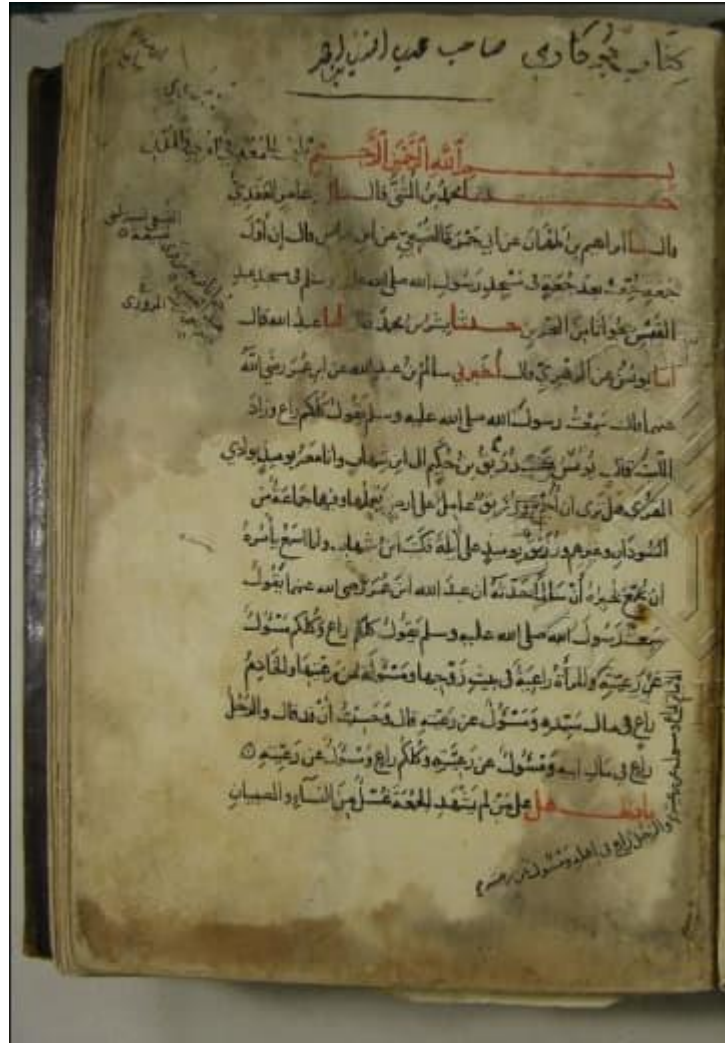 كتاب بخاري صاحب
بسم الله الرحمن الرحيم باب الجمعة في القرى والمدن
حدثنا محمد بن المثنى قال نا ابو عامر العقدي
قال نا ابراهيم بن طهمان عن ابي جمرة الضبعي عن ابن عباس قال إن أول
جمعة جمعت بعد جمعة في مسجد رسول الله صلى الله عليه وسلم في مسجد عبد
القيس بجواثا من البحرين حدثنا بشر بن محمد قال انا عبد الله قال
انا يونس عن الزهري قال أخبرني سالم بن عبد الله عن ابن عمر رضي الله
عنهما قال سمعت رسول الله صلى الله عليه وسلم يقول كلكم راع وزاد
الليث قال يونس كتب رزيق بن حكيم الى ابن شهاب وانا معه يومئذ بوادي
القرى هل ترى ان أجمع ورزيق عامل على ارض يعملها وفيها جماعة من
السودان وغيرهم ورزيق يومئذ على أيلة فكتب ابن شهاب وانا اسمع يأمره
ان يجمع يخبره أن سالما حدثه ان عبد الله ابن عمر رضى الله عنهما يقول
سمعت رسول الله صلى الله عليه وسلم يقول كلكم راع وكلكم مسئول
عن رعيته والمرأة راعية في بيت زوجها ومسئولة عن رعيتها والخادم
راع في مال سيده ومسئول عن رعيته قال وحسبت أن قد قال والرجل
راع في مال ابيه ومسئول عن رعيته وكلكم راع ومسئول عن رعيته
باب هل على من لم يشهد الجمعة غسل من النساء والصبيان
الامام راع ومسئول عن رعيته
والرجل راع في اهله ومسئول عن رعيته
المروزى